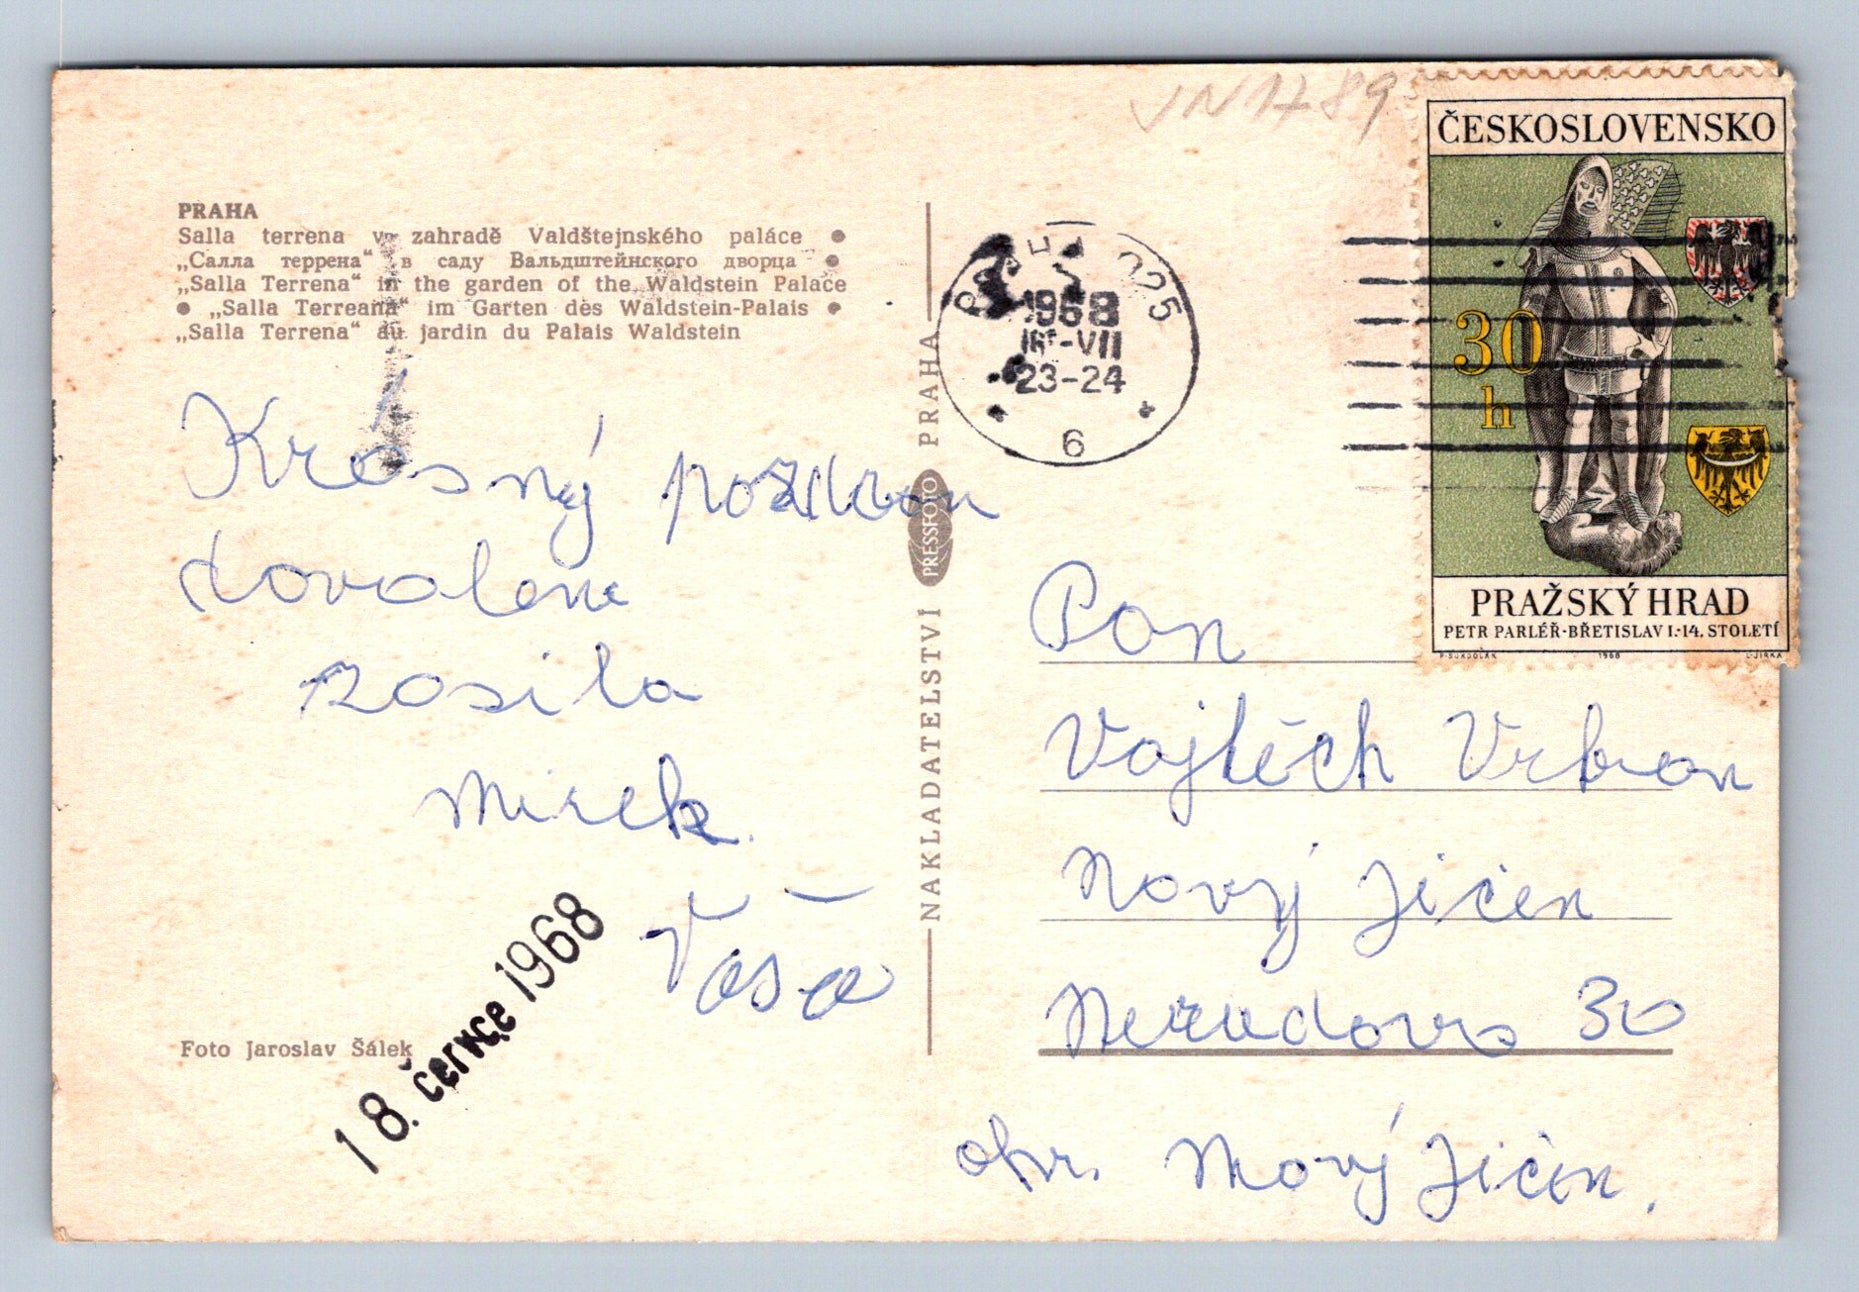 VN 1789
ČESKOSLOVENSKO
30
h
PRAŽSKÝ HRAD
PETR PARLÉŘ-BŘETISLAV I.-14. STOLETÍ
1968
L.JIRKA
PRAHA
Salla terrena v zahradě Valdštejnského paláce ●
„Салла террена“ в саду Вальдштейнского дворца ●
„Salla Terrena“ in the garden of the Waldstein Palace
● „Salla Terreana“ im Garten des Waldstein-Palais ●
„Salla Terrena“ au jardin du Palais Waldstein
1968
-VII
23-24
6
Krásný
dovolene
zosila
Mirek.
Váša
18. července 1968
Foto Jaroslav Šálek
NAKLADATELSTVÍ PRESSFOTO PRAHA
Pan
Vojtěch Vrban
Nový Jičín
Nerudova 30
okr. Nový Jičín.